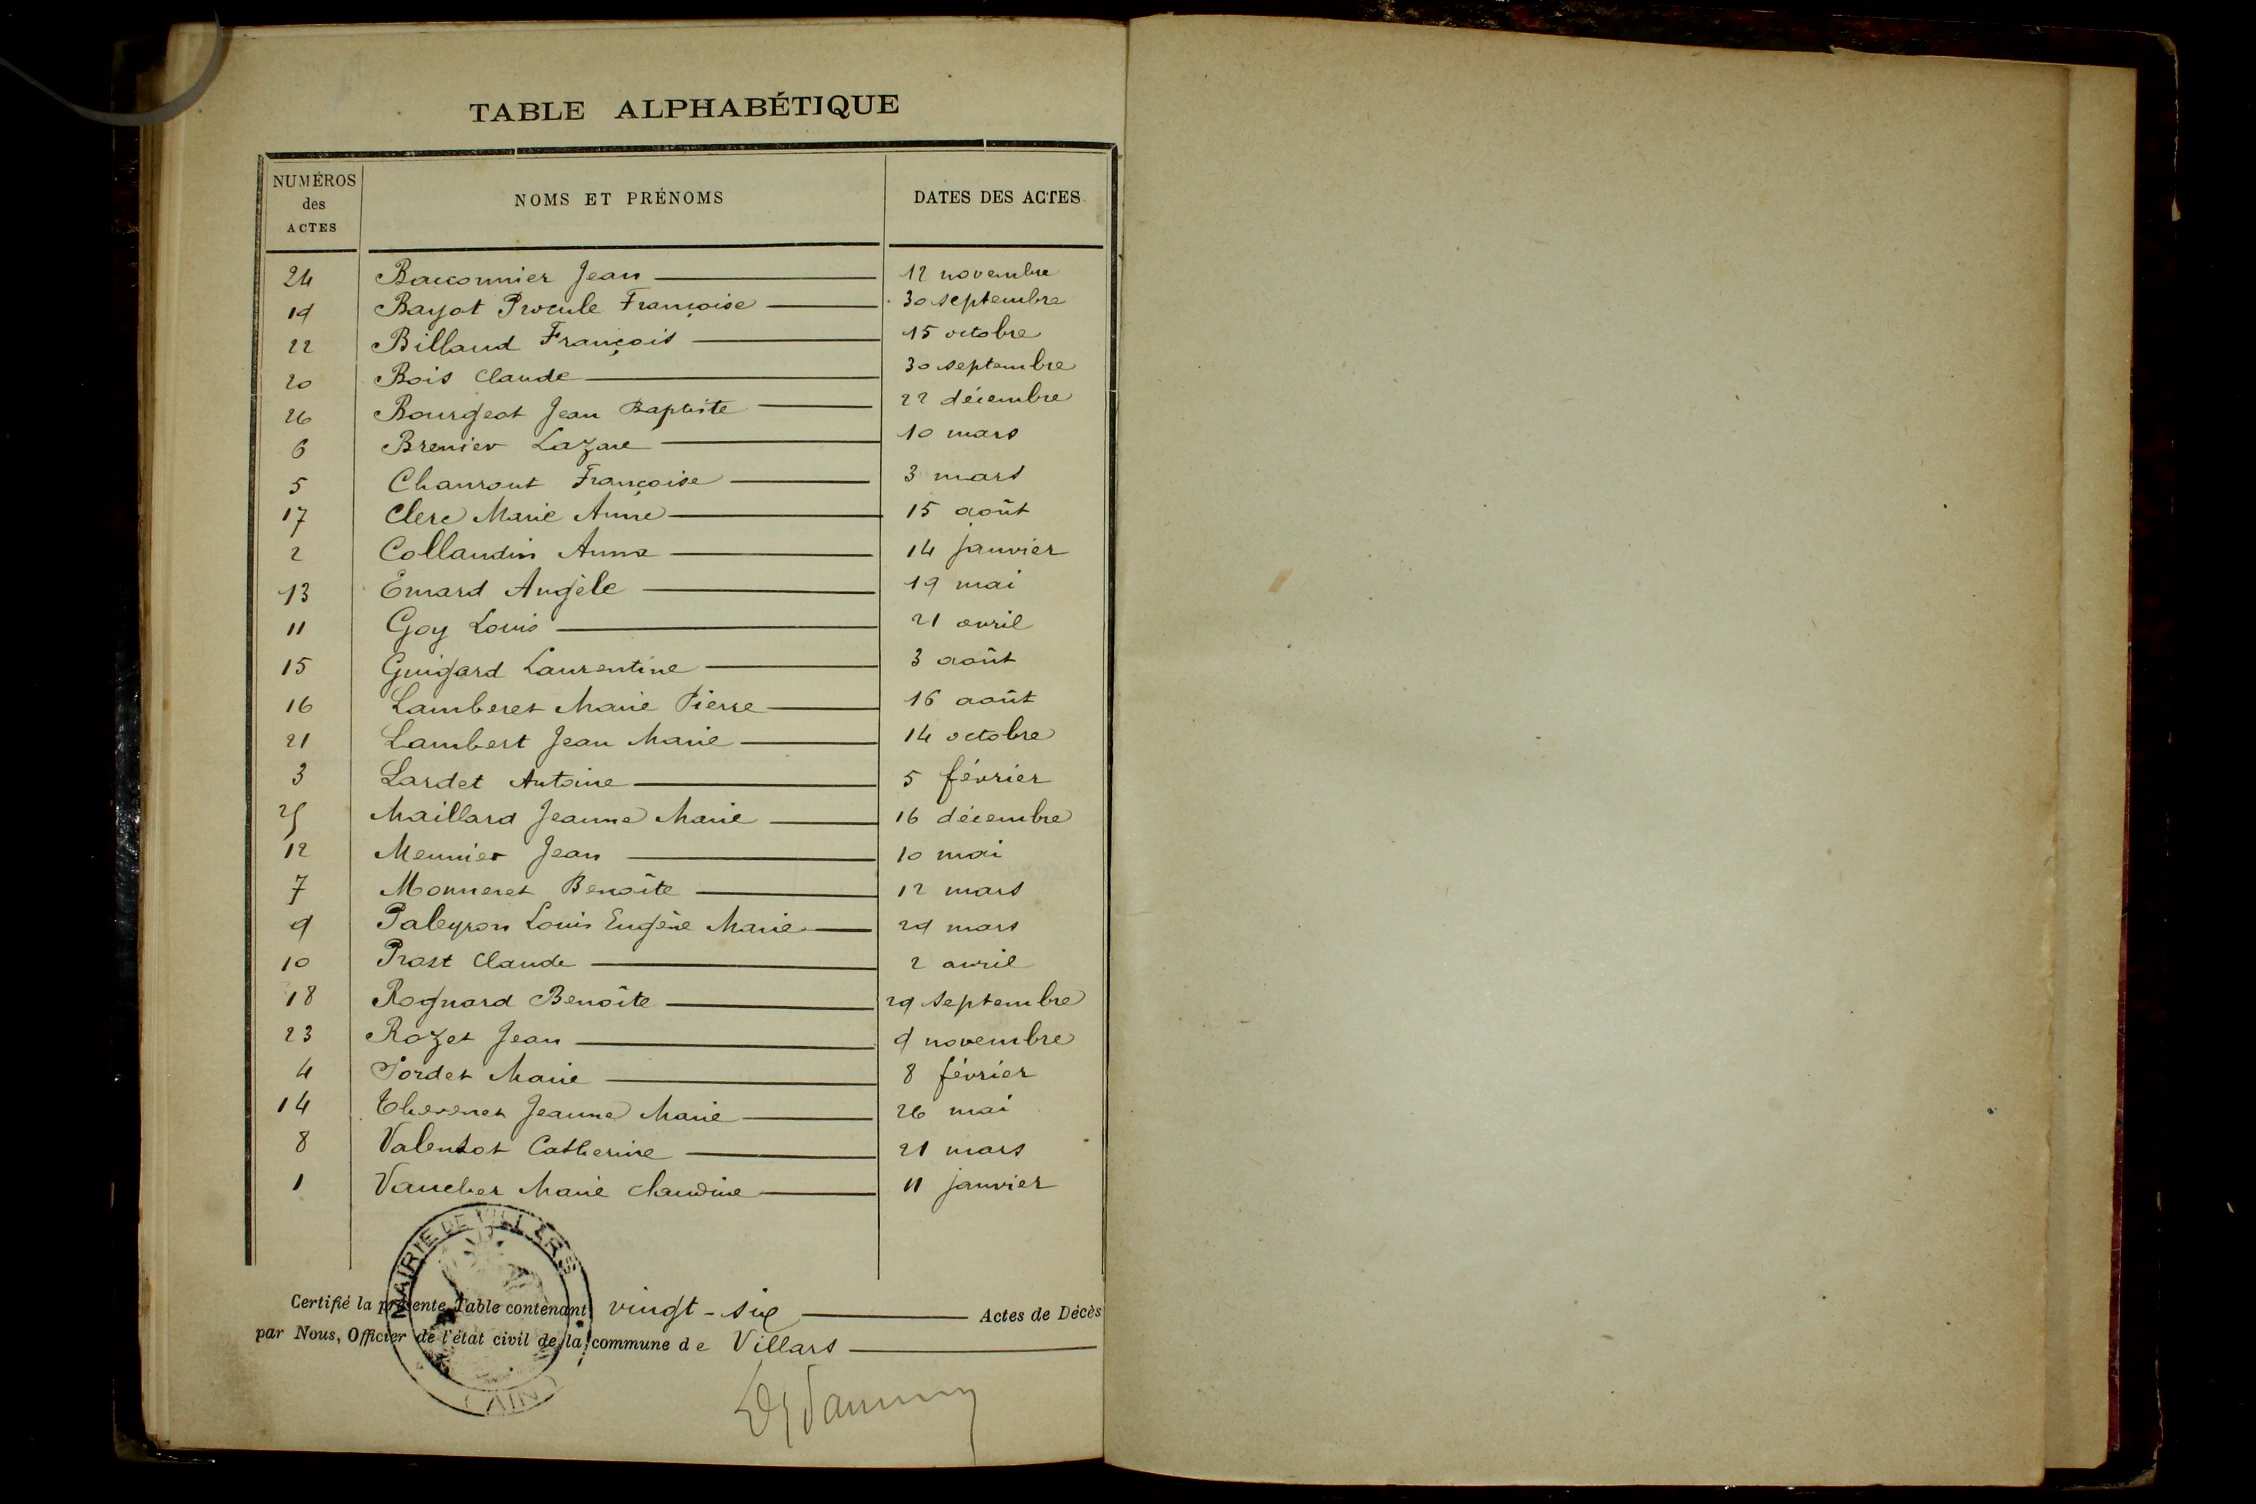 TABLE ALPHABÉTIQUE
NUMÉROS des ACTES NOMS ET PRÉNOMS DATES DES ACTES
24 Bauconnier Jean 12 novembre
19 Bayot Procule Françoise 30 septembre
22 Billaud François 15 octobre
20 Bois Claude 30 septembre
26 Bourgeot Jean Baptiste 22 décembre
6 Brenier Lazare 10 mars
5 Chanrout Françoise 3 mars
17 Clerc Marie Anne 15 août
2 Collaudin Anna 14 janvier
13 Emard Angèle 19 mai
11 Goy Louis 21 avril
15 Guigard Laurentine 3 août
16 Lamberet Marie Pierre 16 août
21 Lambert Jean Marie 14 octobre
3 Lardet Antoine 5 février
25 Maillard Jeanne Marie 16 décembre
12 Meunier Jean 10 mai
7 Monneret Benoîte 12 mars
9 Paleyron Louis Eugène Marie 29 mars
10 Prost Claude 2 avril
18 Rognard Benoîte 29 septembre
23 Rozet Jean 9 novembre
4 Sordet Marie 8 février
14 Thevenet Jeanne Marie 26 mai
8 Valensot Catherine 21 mars
1 Vaucher Marie Claudine 11 janvier
MAIRIE DE VILLARS
(AIN)
Certifié la présente Table contenant vingt-six Actes de Décès
par Nous, Officier de l'état civil de la commune de Villars